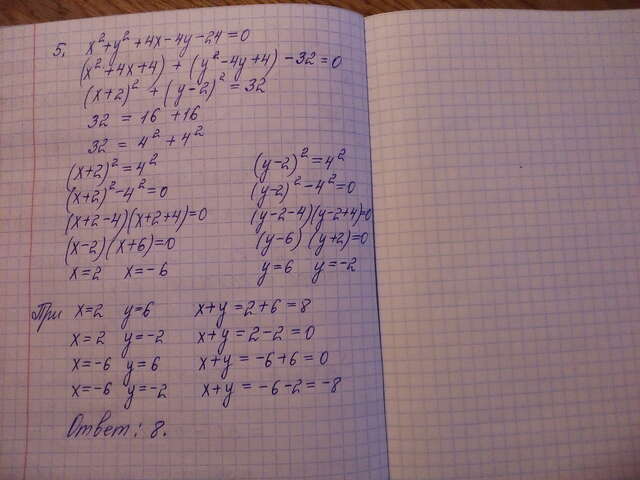 5. x²+y²+4x-4y-24=0
(x²+4x+4)+(y²-4y+4)-32=0
(x+2)²+(y-2)²=32
32 = 16 +16
32 = 4² + 4²
(x+2)²=4² (y-2)²=4²
(x+2)²-4²=0 (y-2)²-4²=0
(x+2-4)(x+2+4)=0 (y-2-4)(y-2+4)=0
(x-2)(x+6)=0 (y-6)(y+2)=0
x=2 x=-6 y=6 y=-2
При x=2 y=6 x+y=2+6=8
x=2 y=-2 x+y=2-2=0
x=-6 y=6 x+y=-6+6=0
x=-6 y=-2 x+y=-6-2=-8
Ответ: 8.